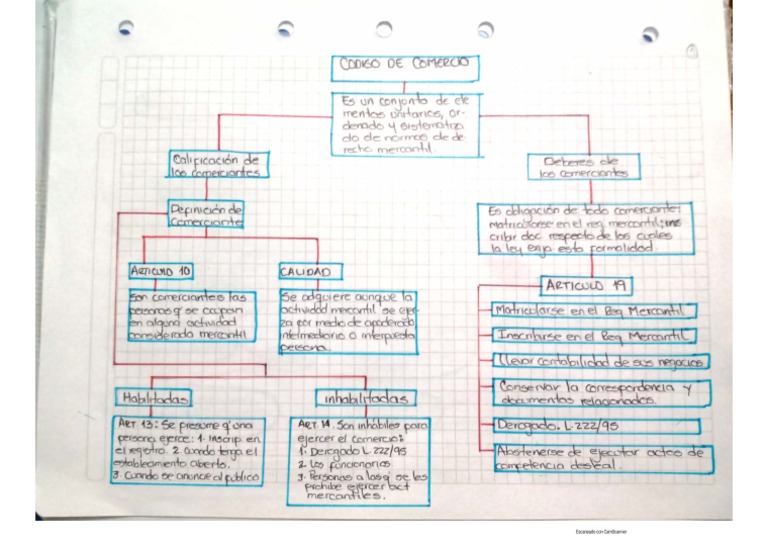 1
CODIGO DE COMERCIO
Es un conjunto de ele
mentos unitarios, or-
denado y sistematiza
do de normas de de-
recho mercantil.
Calificación de
los comerciantes
Deberes de
los comerciantes
Definición de
Comerciante
Es obligación de todo comerciante:
Matricularse en el reg mercantil; ins
cribir doc respecto de los cuales
la ley exija esta formalidad.
ARTICULO 10
CALIDAD
ARTICULO 19
Son comerciantes las
personas q' se ocupan
en alguna actividad
considerado mercantil
Se adquiere aunque la
actividad mercantil se ejer-
za por medio de apoderado
intermediario o interpuesta
persona.
Matricularse en el Reg Mercantil
Inscribirse en el Reg. Mercantil
Llevar contabilidad de sus negocios
Conservar la correspondencia y
documentos relacionados.
Derogado. L-222/95
Abstenerse de ejecutar actos de
competencia desleal.
Habilitadas
inhabilitadas
ART 13: Se presume q' una
persona ejerce: 1. Inscrip en
el registro. 2. Cuando tenga el
establecimiento abierto.
3. Cuando se anuncie al publico
ART. 14. Son inhábiles para
ejercer el comercio:
1. Derogado L.222/95
2. Los funcionarios
3. Personas a las q' se les
prohibe ejercer act
mercantiles.
Escaneado con CamScanner